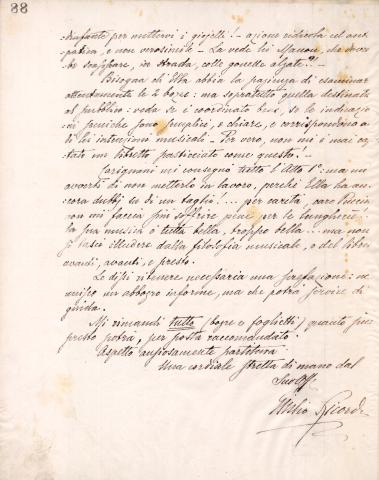 88
trafante per mettervi i gioielli! – azione ridicola ed anti-
patica, e non verosimile – La vede lei Manon, che dovreb-
be scappare, in strada, colle gonede alzate?! –
Bisogna ch'Ella abbia la pazienza di esaminar
attentamente le 2 boze: ma sopratutto quella destinata
al pubblico: veda se è coordinata bene, se le indicazio-
ni sceniche sono semplici, e chiare, e corrispondono a
di lei intenzioni musicali. Per vero, non mi è mai ca-
pitato un libretto pasticciato come questo! –
Carignani mi consegnò tutto l'Atto 1º: ma mi
avvertì di non metterlo in lavoro, perchè Ella ha an-
cora dubbi su di un taglio!... per carità, caro Puccini
non mi faccia più soffrire pene per le lungherie:
la sua musica è tutta bella, troppo bella ... ma non
si lasci illudere dalla filosofia musicale, o del libro
avanti, avanti, e presto.
Le dissi ritenere necessaria una prefazione: ne
unisco un abbozzo informe, ma che potrà servire di
guida.
Mi rimandi tutto (boze e foglietti) quanto più
presto potrà, per posta raccomandato.
Aspetto ansiosamente partitura
Una cordiale stretta di mano dal
Suo Aff.
Giulio Ricordi